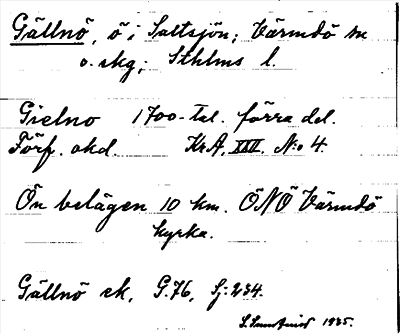 Gällnö, ö i Saltsjön; Värmdö sn
o. skg; Sthlms l.
Gielno 1700-tal. förra del.
Förf. okd. Kr.A, XXII. N:o 4.
Ön belägen 10 km. ÖNÖ Värmdö
kyrka.
Gällnö ek, G.76, Sj:254.
1935.